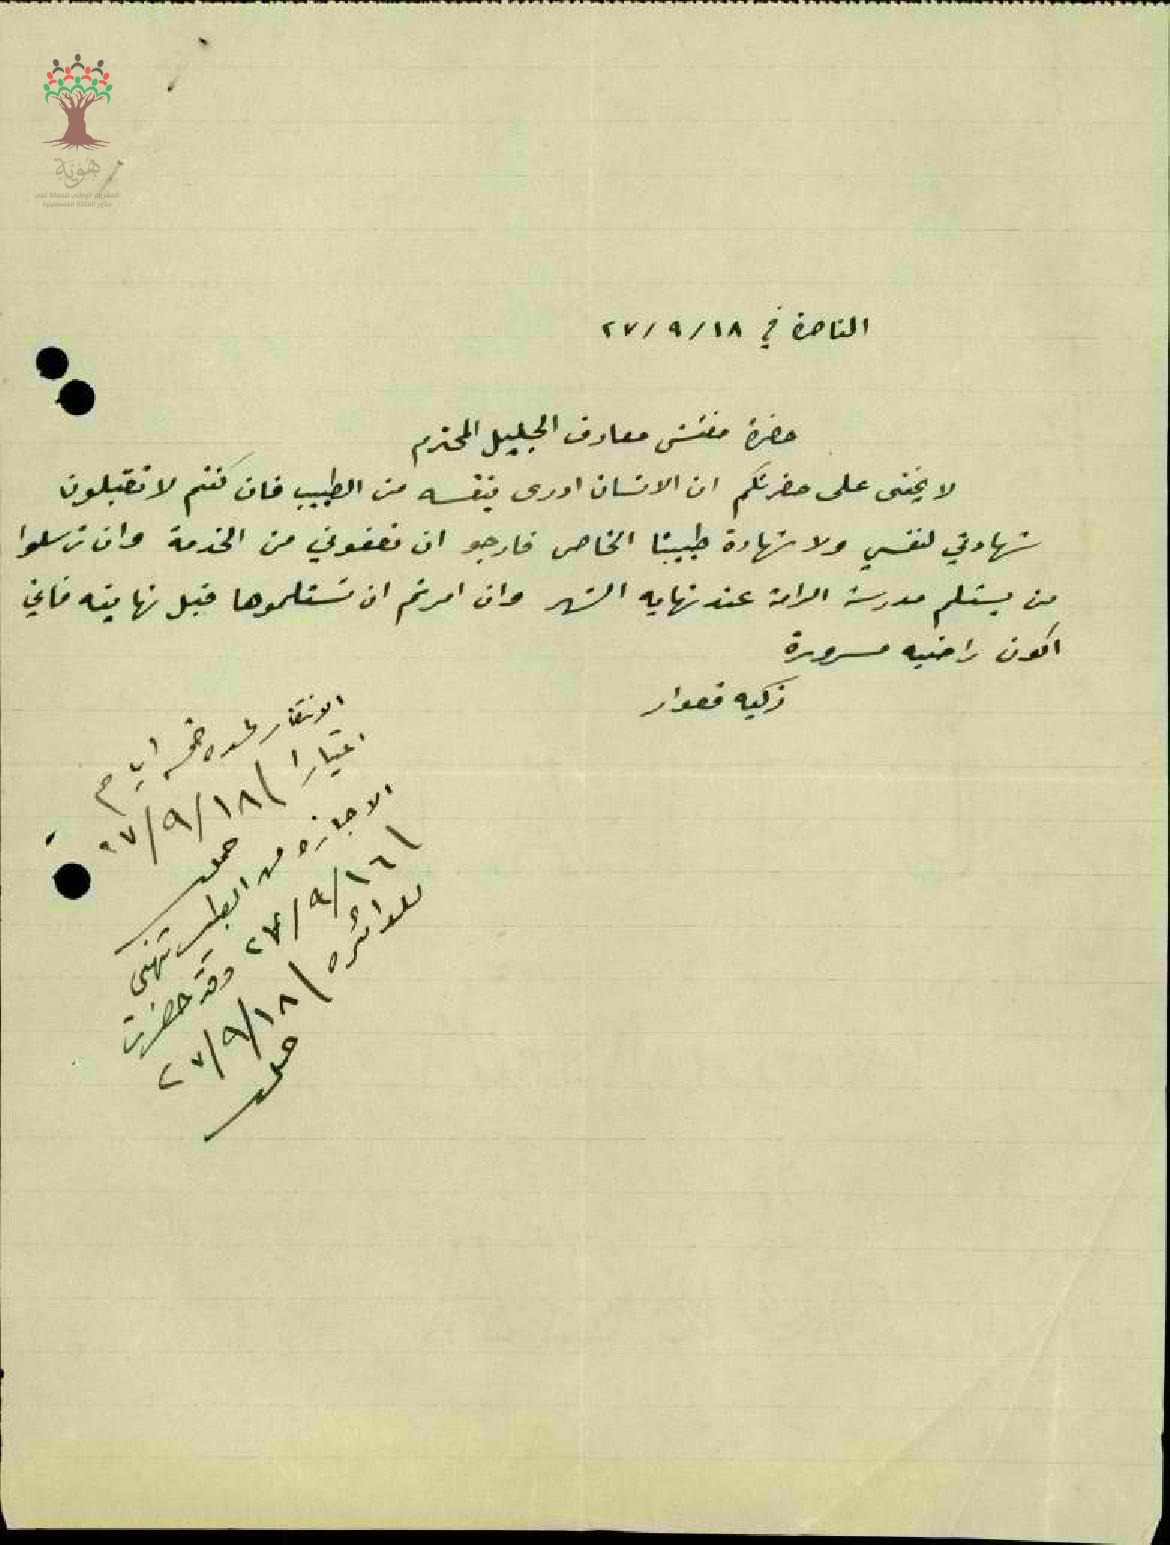 هوية
المشروع الوطني للحفاظ على
جذور العائلة الفلسطينية
الناصرة في ١٨/٩/٢٧
حضرة مفتش معارف الجليل المحترم
لا يخفى على حضرتكم ان الانسان ادرى بنفسه من الطبيب فان كنتم لا تقبلون
شهادتي لنفسي ولا شهادة طبيبنا الخاص فارجو ان تعفوني من الخدمة وان ترسلوا
من يستلم مدرسة الرامة عند نهايه الشهر وان امرتم ان تستلموها قبل نهايته فاني
اكون راضيه مسرورة
زكيه قعوار
الانتظار لمده خمسه ايام
اعتبارا ١٨/٩/٢٧
الاجازه من الطبيب تنتهي
١٦/٩/٢٧ وقد حضرت
للدائره ١٨/٩/٢٧